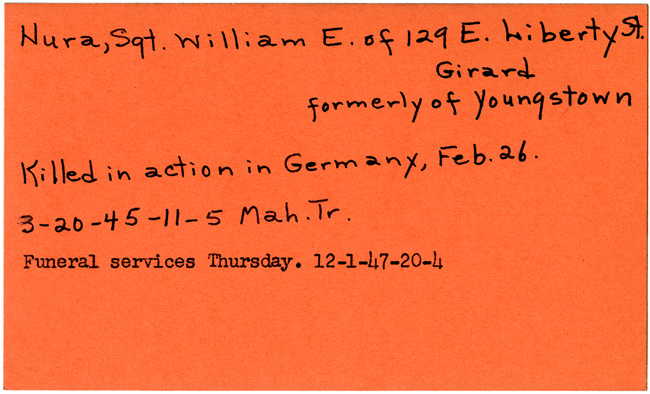 Nura, Sgt. William E. of 129 E. Liberty St.
Girard
formerly of Youngstown
Killed in action in Germany, Feb. 26.
3-20-45-11-5 Mah. Tr.
Funeral services Thursday. 12-1-47-20-4